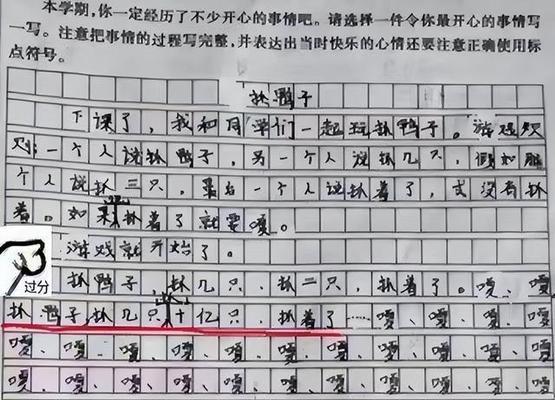 本学期,你一定经历了不少开心的事情吧。请选择一件令你最开心的事情写
一写。注意把事情的过程写完整,并表达出当时快乐的心情还要注意正确使用标
点符号。
抓鸭子
下课了，我和同学们一起玩抓鸭子。游戏规
则：一个人说抓鸭子，另一个人说抓几只，假如
个人说抓三只，最后一个人说抓着了，或没有抓
着。如果抓着了就要嘎。
游戏就开始了。
过分
抓鸭子，抓几只，抓三只，抓着了。嘎、嘎、
抓鸭子，抓几只，抓十亿只，抓着了……嘎、嘎、嘎、
嘎、嘎、嘎、嘎、嘎、嘎、嘎、嘎、嘎、嘎、
嘎、嘎、嘎、嘎、嘎、嘎、嘎、嘎、嘎、嘎、